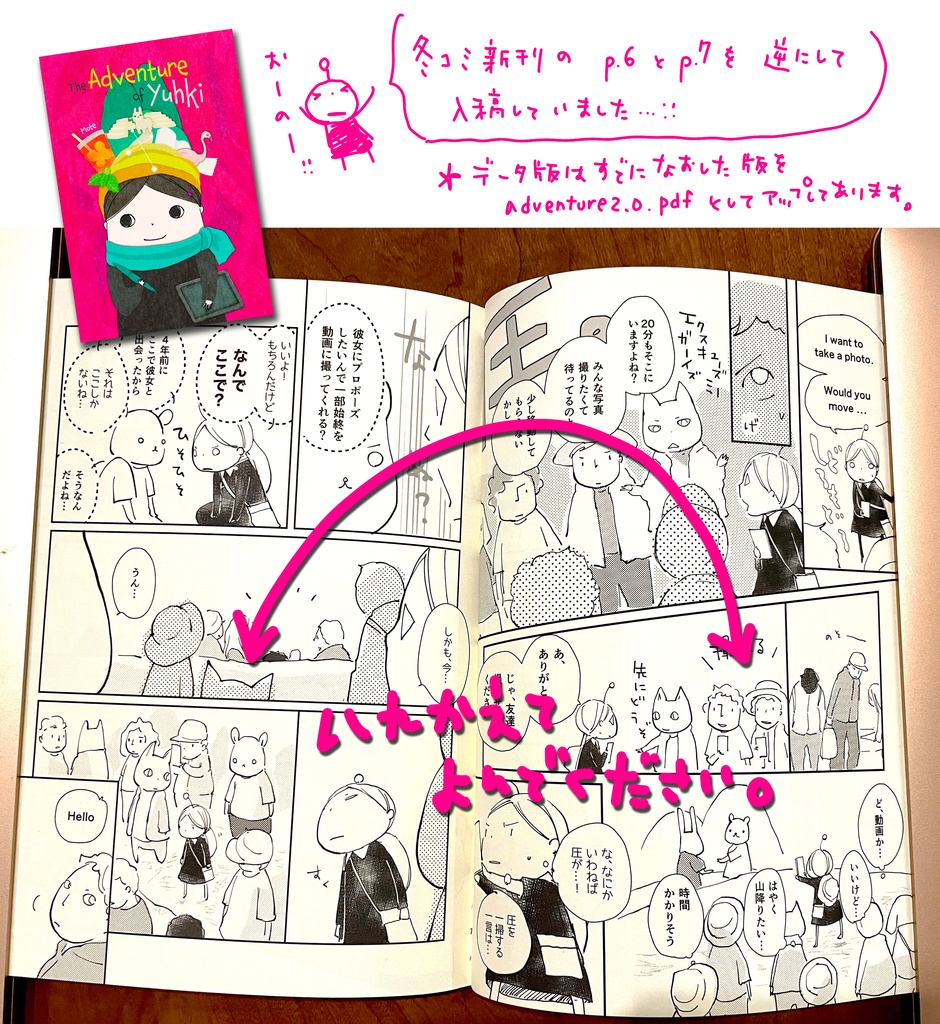 The Adventure
of Yuhki
Mate
おーのー!!
冬コミ新刊の p.6 と p.7 を 逆にして
入稿していました…!!
＊データ版はすでになおした版を
adventure2.0.pdf としてアップしてあります。
I want to
take a photo.
Would you
move …
げ
エクスキューズミー
ガーイズ
20分もそこに
いますよね?
みんな写真
撮りたくて
待ってるの
少し
もら
かし
圧。
のそ
先にどうぞ
あ、
ありがと
じゃ、友達
ど、動画か…
いいけど…
はやく
山降りたい…
時間
かかりそう
な、なにか
いわねば
圧が…!
圧を
一掃する
一言は…
な
?
彼女にプロポーズ
したいんで一部始終を
動画に撮ってくれる?
いいよ!
もちろんだけど
なんで
ここで?
4年前に
ここで彼女と
出会ったから
それは
ここしか
ないね…
ひそひそ
そうなん
だよね…
しかも、今…
うん…
すく
Hello
いれかえて
よんでください。